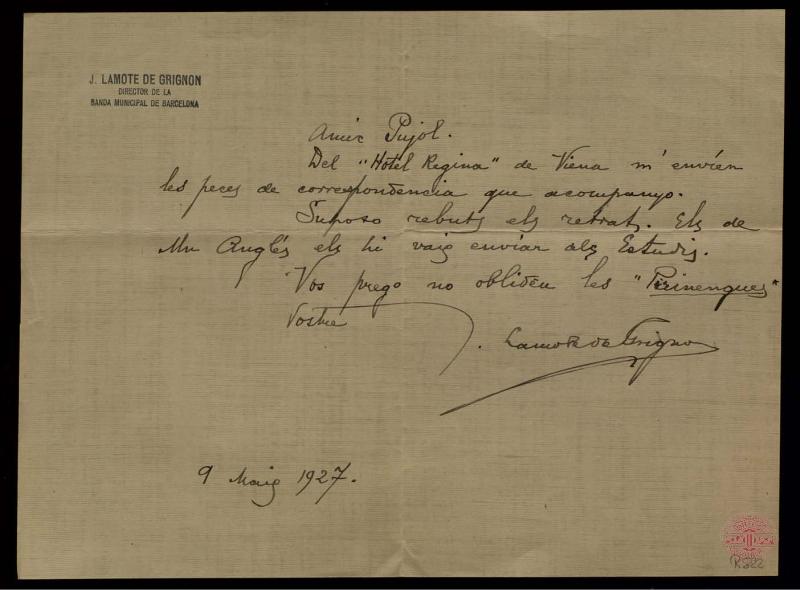 J. LAMOTE DE GRIGNON
DIRECTOR DE LA
BANDA MUNICIPAL DE BARCELONA
Amic Pujol.
Del "Hotel Regina" de Viena m'envíen
les peces de correspondencia que acompanyo.
Suposo rebuts els retrats. Els de
Mn Anglés els hi vaig enviar als Estudis.
Vos prego no oblideu les "Pirinengues"
Vostre
J. Lamote de Grignon
9 Maig 1927.
R.322